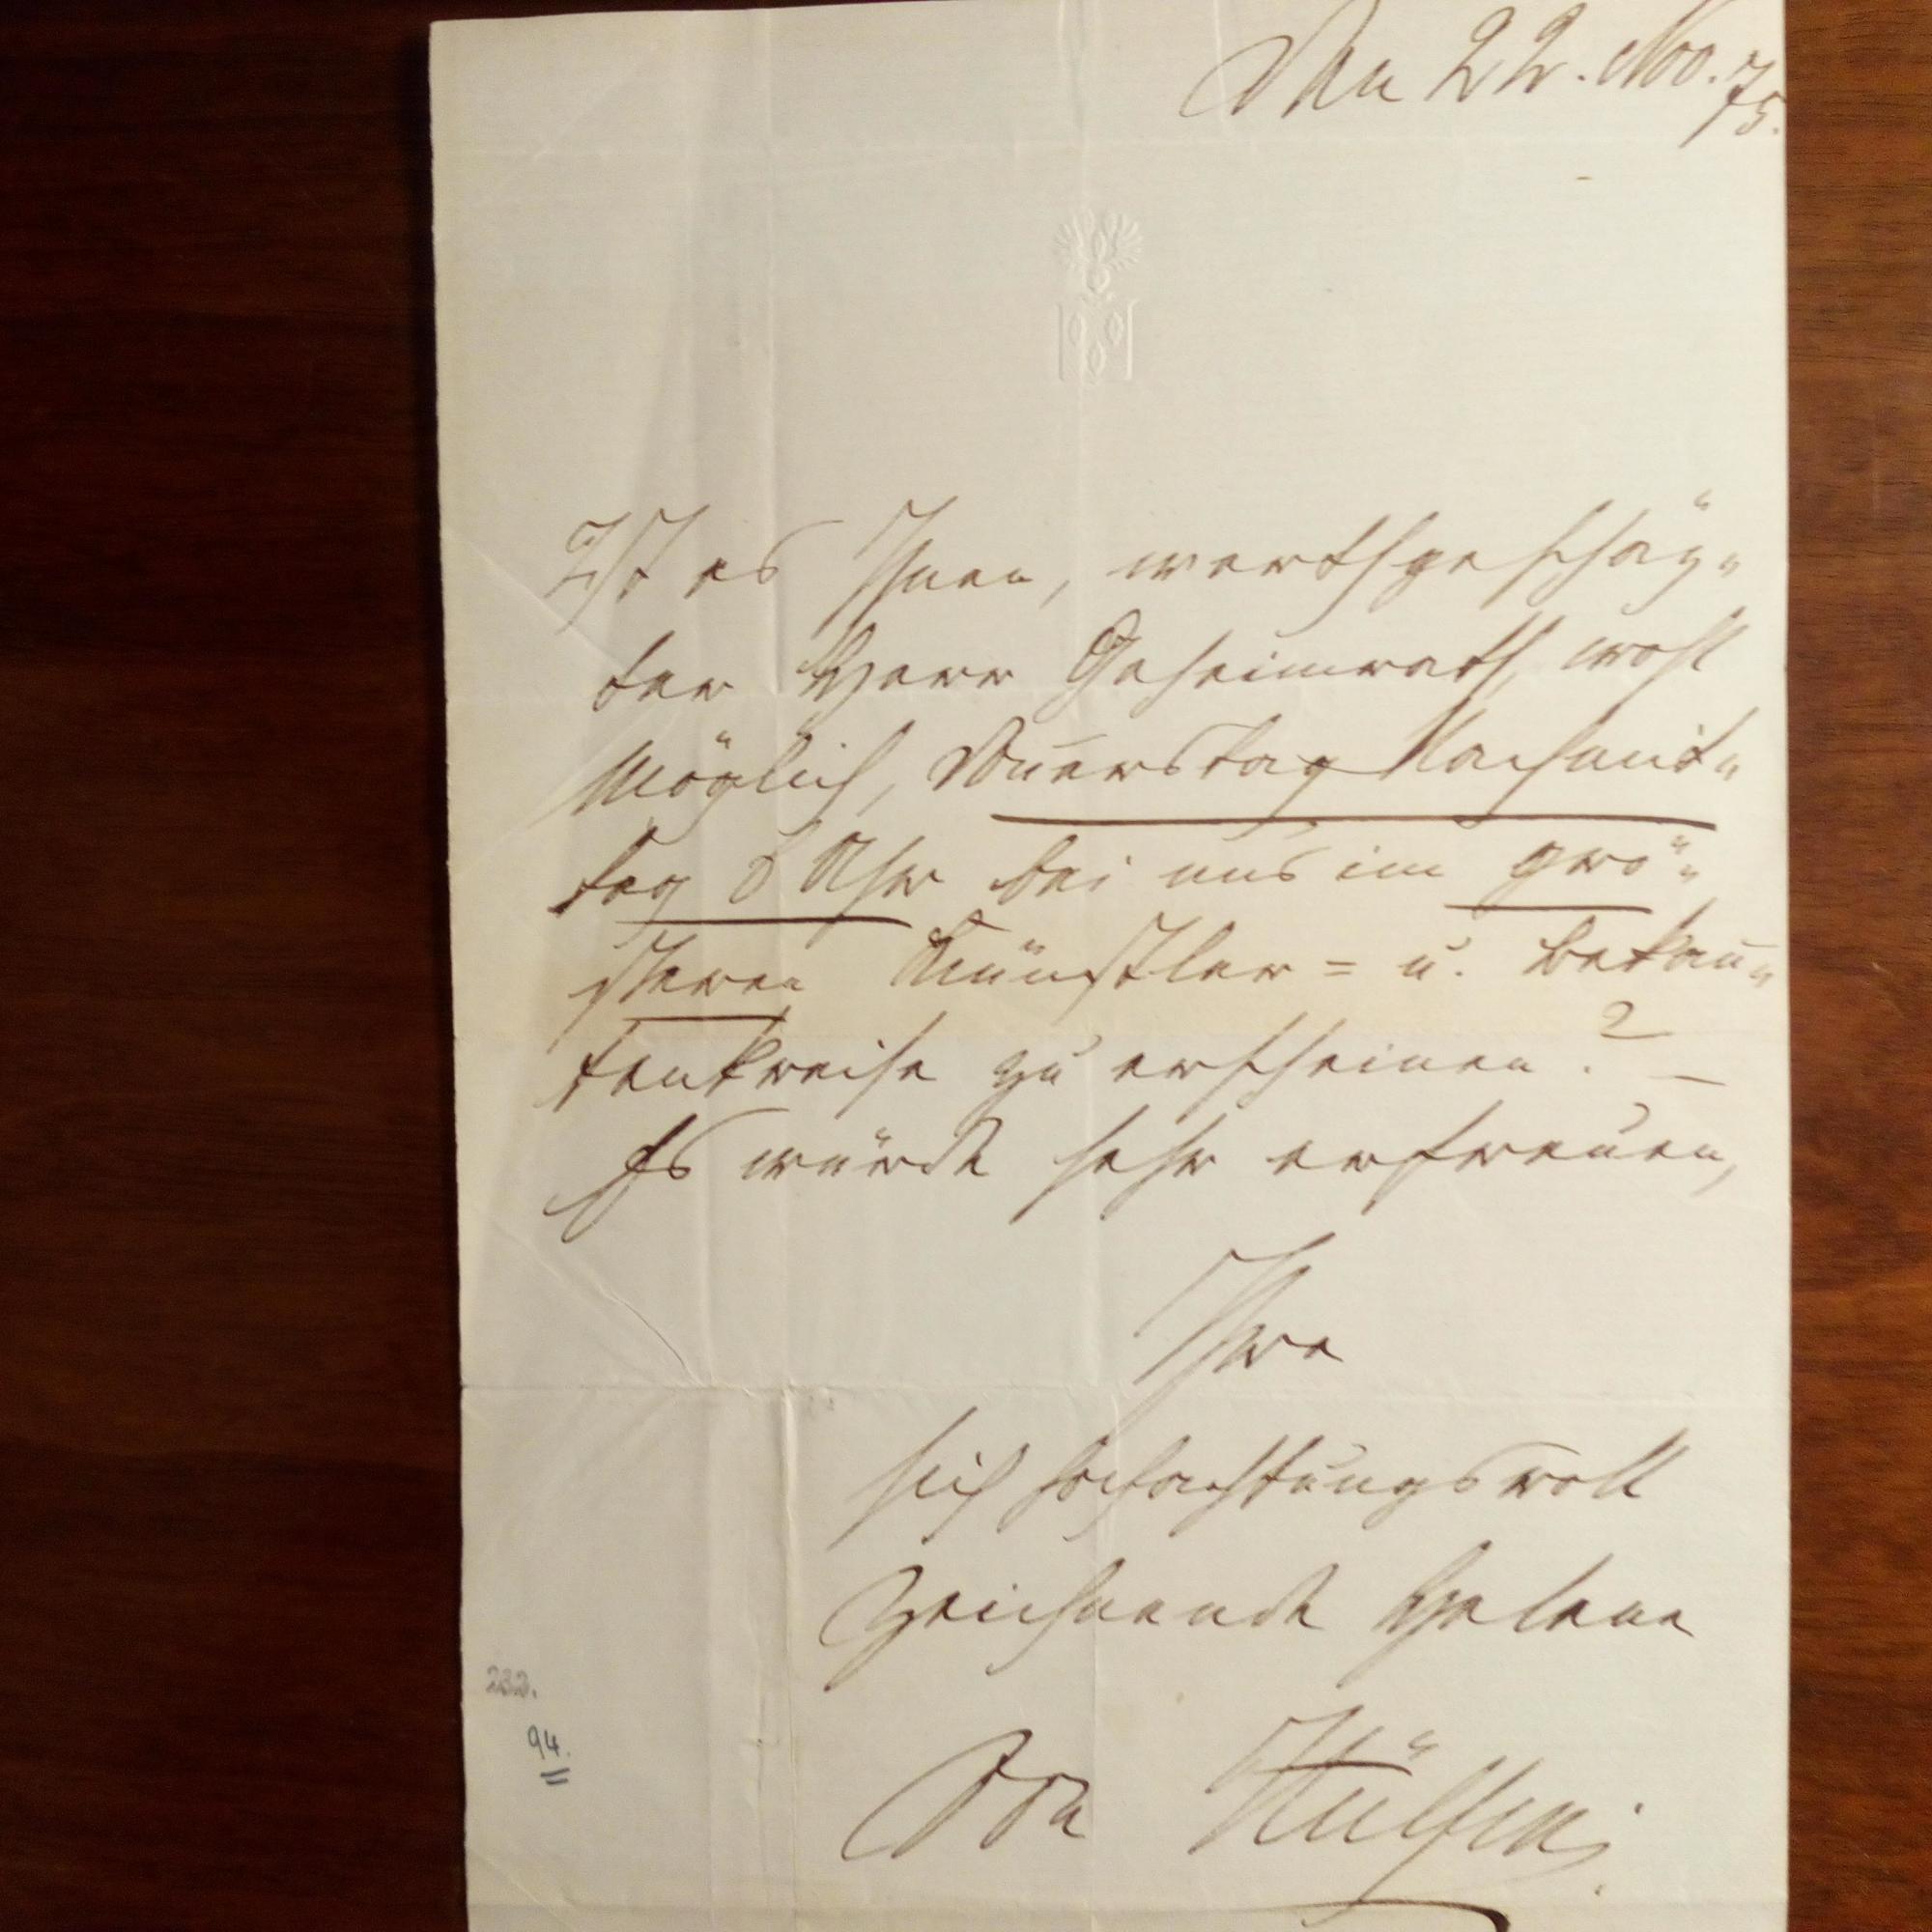 Den 22. Nov. 75.
Ist es Ihnen, werthgeschäz„
ter Herr Geheimrath, wohl
möglich, Donn̄erstag Nachmit„
tag 8 Uhr bei uns im grö„
ßeren Künstler= u. Bekan̄„
tenkreise zu erscheinen? –
Es würde sehr erfreuen,
Ihre
sich hochachtungsvoll
Zeichnende Helene
von Hülsen.
232.
94.